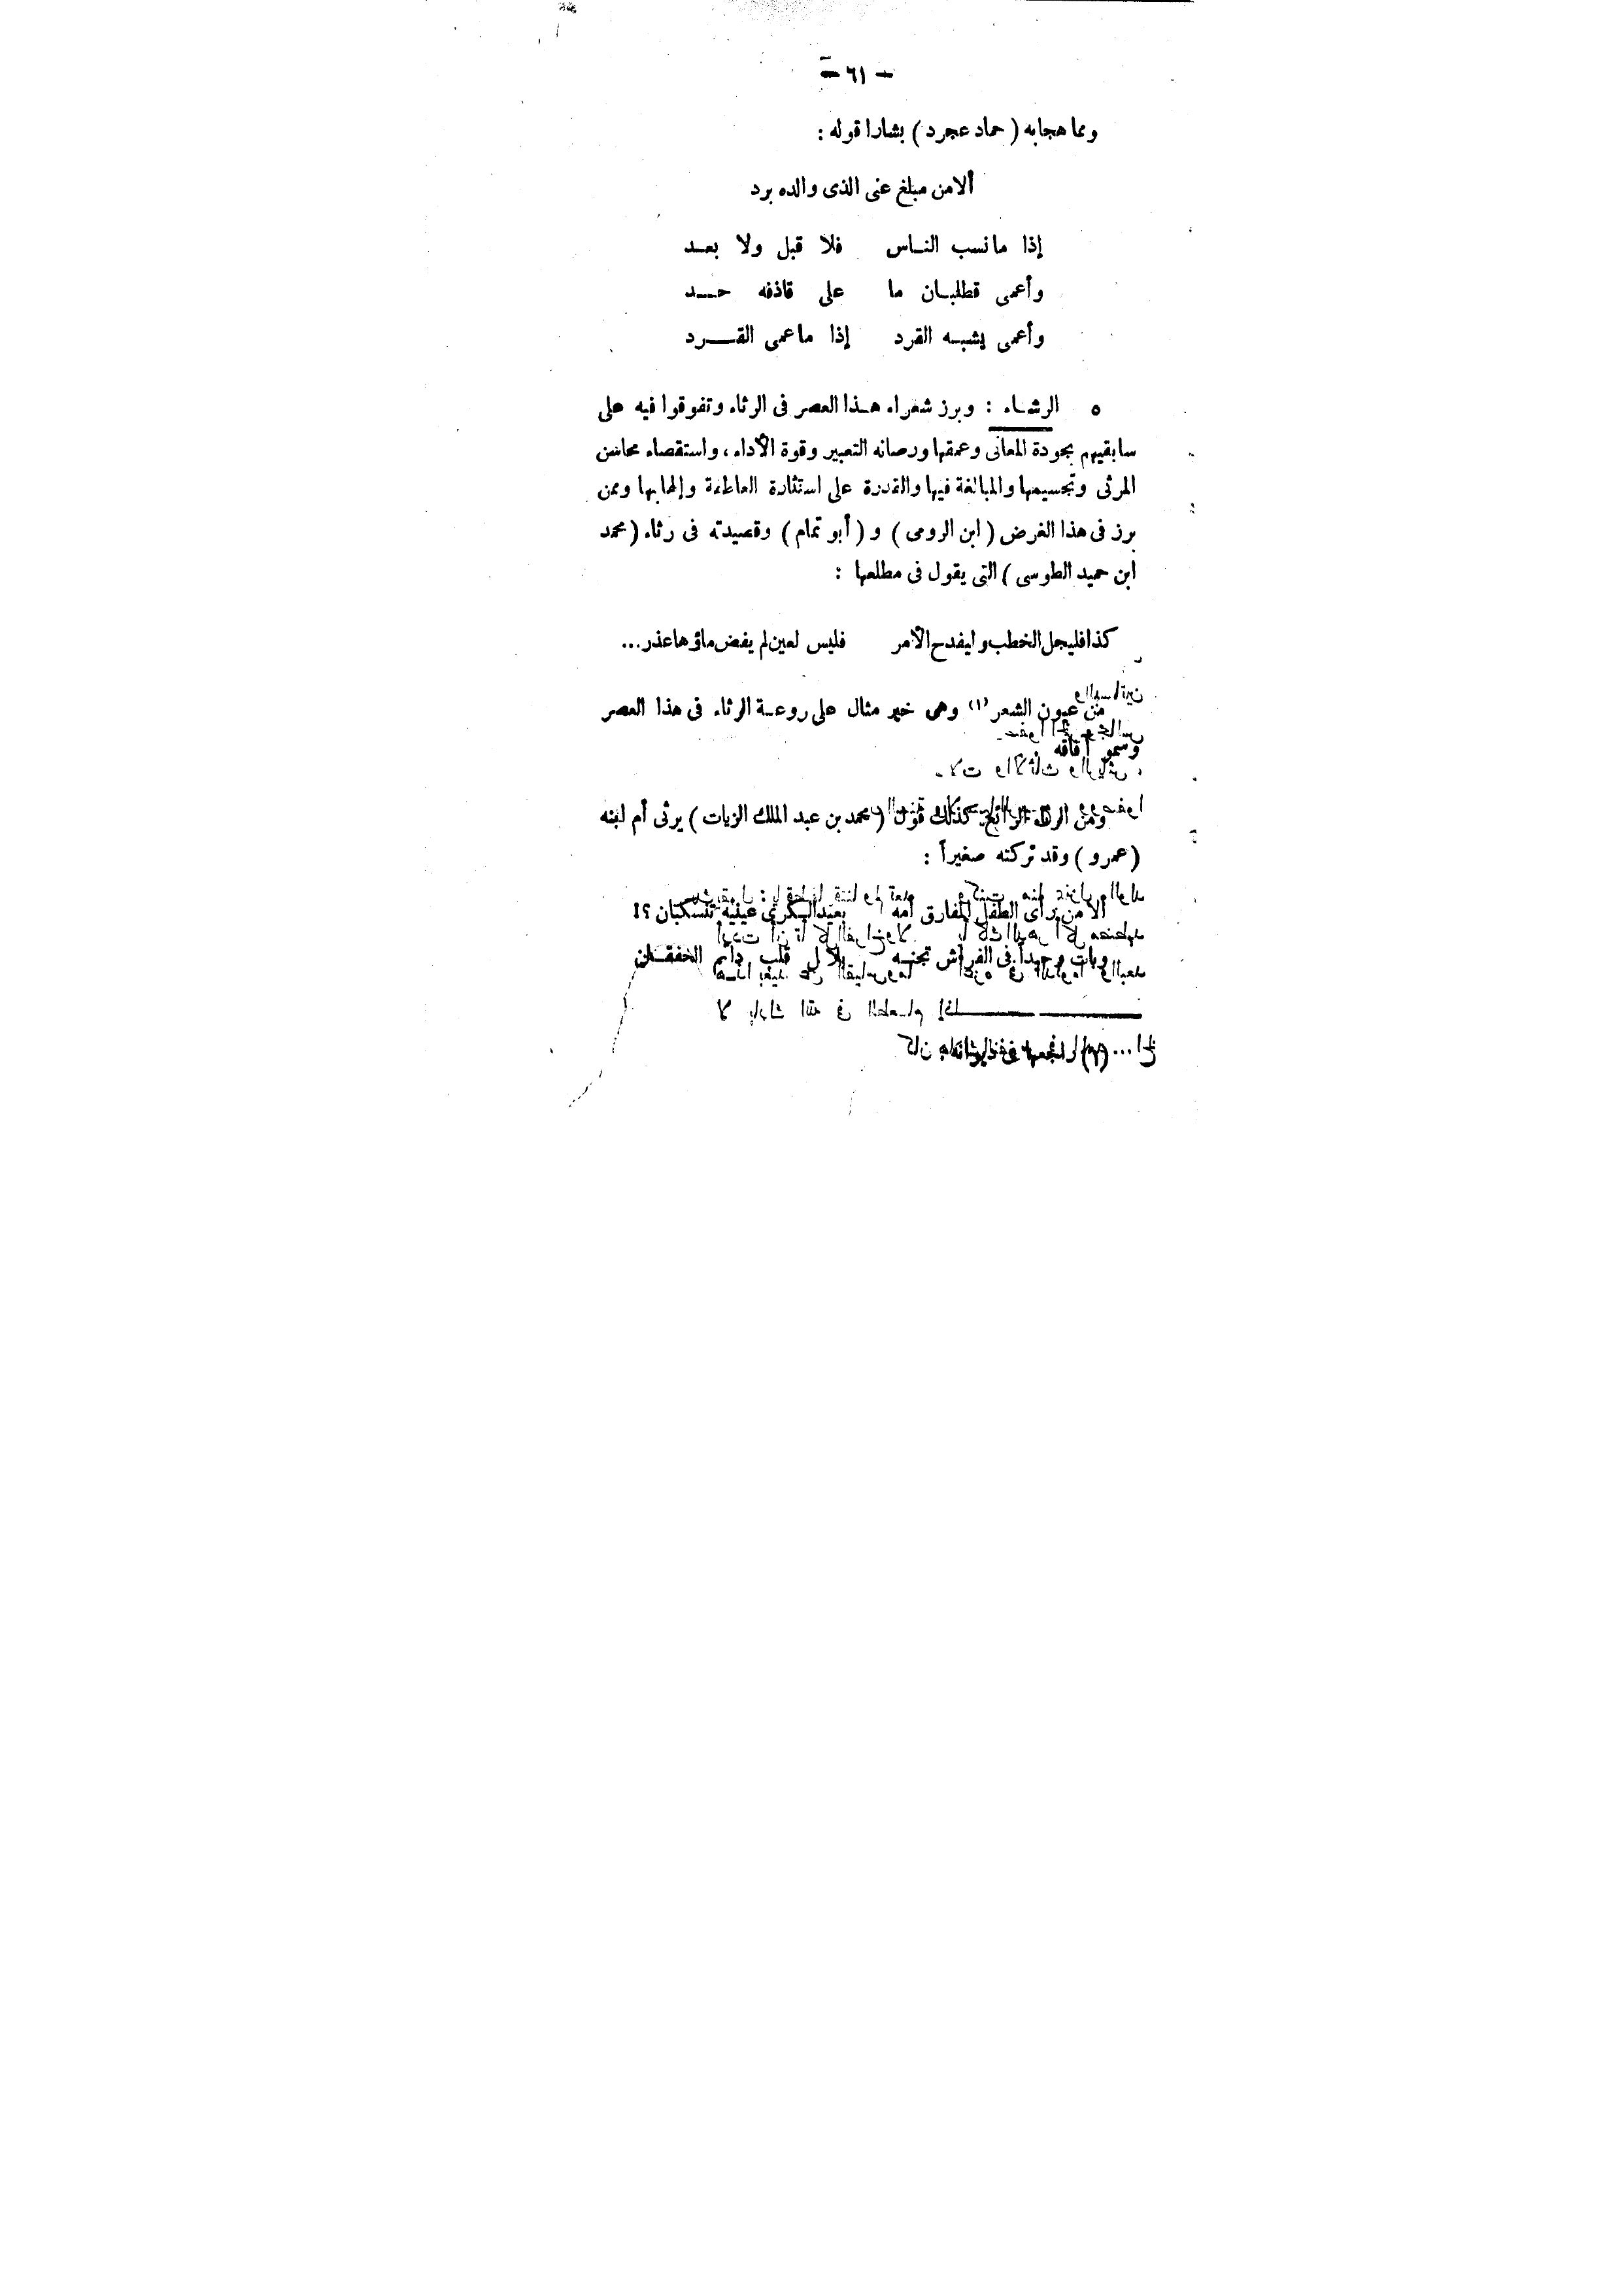 - ٦١ -
ومما هجابه ( حماد عجرد ) بشارا قوله :
ألا من مبلغ عنى الذى والده برد
إذا ما نسب النـاس فلا قبل ولا بعـد
وأعمى قطلبـان ما على قاذفه حــد
وأعمى يشبـه القرد إذا ما عمى القــرد
٥ الرثـاء : وبرز شعراء هـذا العصر فى الرثاء وتفوقوا فيه على
سابقيهم بجودة المعانى وعمقها ورصانه التعبير وقوة الأداء ، واستقصاء محاسن
المرثى وتجسيمها والمبالغة فيها والقدرة على استثارة العاطفة وإلهابها وممن
برز فى هذا الغرض ( ابن الرومى ) و ( أبو تمام ) وقصيدته فى رثاء ( محمد
ابن حميد الطوسى ) التى يقول فى مطلعها :
كذا فليجل الخطب وليفدح الأمر فليس لعين لم يفض ماؤها عذر ...
من عيون الشعر (١) وهى خير مثال على روعـة الرثاء فى هذا العصر
وسمو آفاقه
ومن الرثاء الرائع كذلك قول ( محمد بن عبد الملك الزيات ) يرثى أم ابنه
( عمرو ) وقد تركته صغيراً :
ألا من رأى الطفل المفارق أمه بعيد الكرى عينيه تنسكبان ؟!
وبات وحيداً فى الفراش تجنـه بلابل قلب دائم الخفقـان
(١)